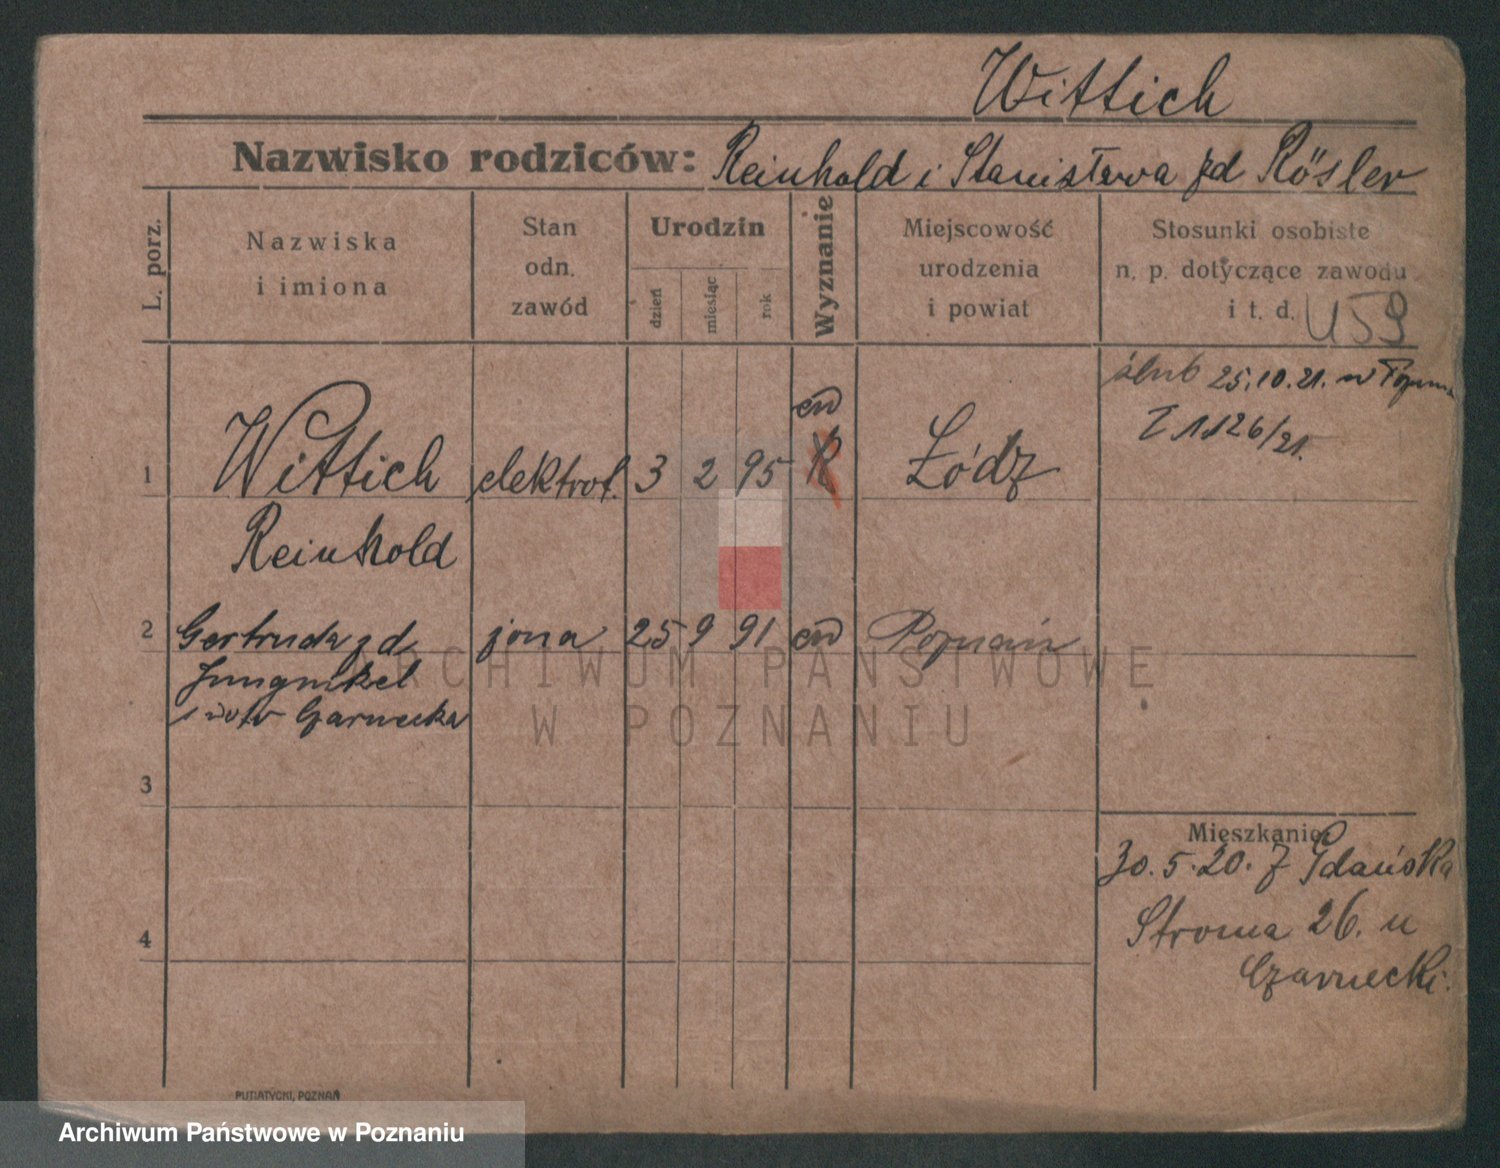 Wittich
Nazwisko rodziców: Reinhold i Stanisława zd Rösler
L. porz.
Nazwiska
i imiona
Stan
odn.
zawód
Urodzin
dzień
miesiąc
rok
Wyznanie
Miejscowość
urodzenia
i powiat
Stosunki osobiste
n. p. dotyczące zawodu
i t. d.
ślub 25.10.21. w
1126/21.
1 Wittich elektrot. 3 2 95 ew Łódz
Reinhold
2 Gertruda zd żona 25 9 91 ew Poznań
Jungnikel
Czarnecka
3
Mieszkanie:
30.5.20. z Gdańska
Stroma 26. u
Czarnecki.
4
PUTIATYCKI, POZNAŃ
ARCHIWUM PAŃSTWOWE
W POZNANIU
Archiwum Państwowe w Poznaniu